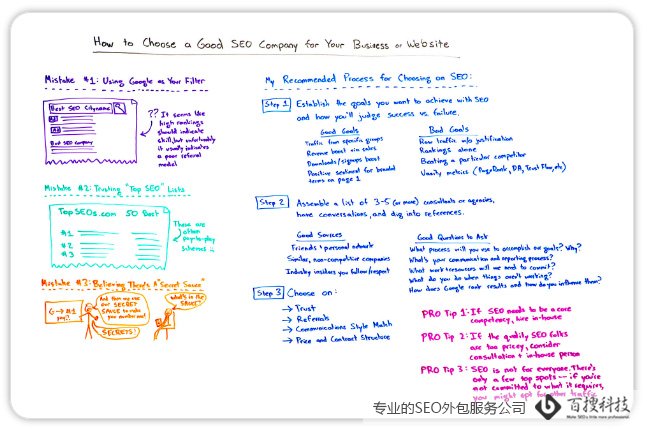 How to Choose a Good SEO Company for Your Business or Website
Mistake #1: Using Google as Your Filter
Best SEO Cityname
Ad
Ad
Best SEO company
?? It seems like
high rankings
should indicate
skill, but unfortunately
it usually indicates
a poor referral
model
Mistake #2: Trusting "Top SEO" Lists
TopSEOs.com 50 Best
#1
#2
#3
These are
often
pay-to-play
schemes :(
Mistake #3: Believing There's A "Secret Sauce"
G → #1
yay!
And then we use
our SECRET
SAUCE to make
your number one!
SECRETS!
What's in the
SAUCE?
My Recommended Process for Choosing an SEO:
Step 1 Establish the goals you want to achieve with SEO
and how you'll judge success vs. failure.
Good Goals
Traffic from specific groups
Revenue boost via sales
Downloads/signups boost
Positive sentiment for branded
terms on page 1
Bad Goals
Raw traffic w/o justification
Rankings alone
Beating a particular competitor
Vanity metrics (PageRank, DA, Trust Flow, etc)
Step 2 Assemble a list of 3-5 (or more) consultants or agencies,
have conversations, and dig into references.
Good Sources
Friends + personal network
Similar, non-competitive companies
Industry insiders you follow/respect
Good Questions to Ask
What process will you use to accomplish our goals? Why?
What's your communication and reporting process?
What work + resources will we need to commit?
What do you do when things aren't working?
How does Google rank results and how do you influence them?
Step 3 Choose on:
→ Trust
→ Referrals
→ Communications Style Match
→ Price and Contract Structure
PRO Tip 1: If SEO needs to be a core
competency, hire in-house
PRO Tip 2: If the quality SEO folks
are too pricey, consider
consultation + in-house person
PRO Tip 3: SEO is not for everyone. There's
only a few top spots -- if you're
not committed to what it requires,
you might opt for other traffic
专业的SEO外包服务公司
百搜科技